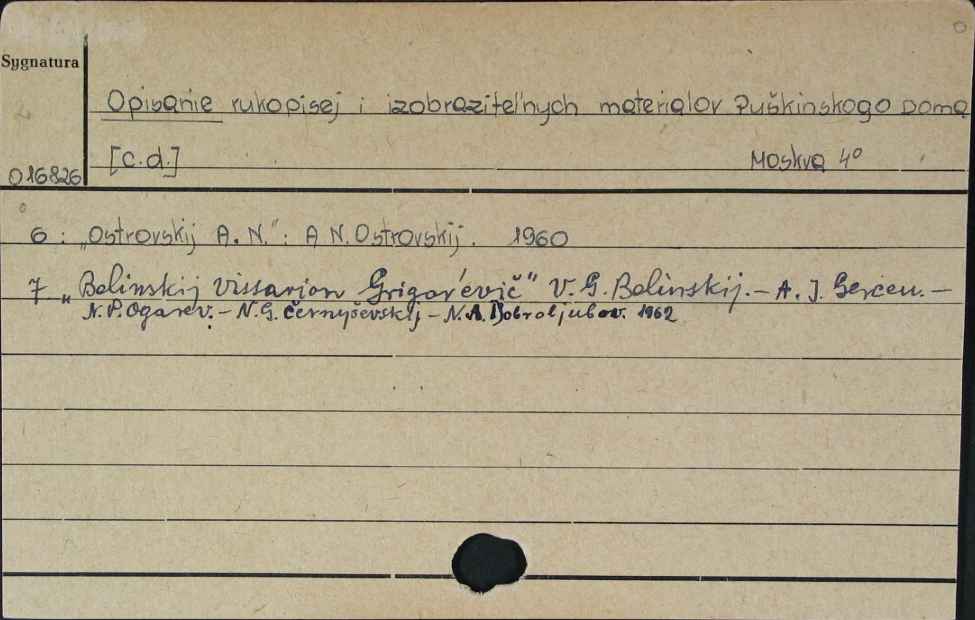 Sygnatura
Opisanie rukopisej i izobrazitel'nych materialov Puškinskogo Doma
[c.d.] Moskva 4°
016826
6 : „Ostrovskij A. N.": A N. Ostrovskij. 1960
7 „Belinskij Vissarion Grigor'evič" V. G. Belinskij. – A. J. Gercen. –
N. P. Ogarev. – N. G. Černyševskij – N. A. Dobroljubov. 1962